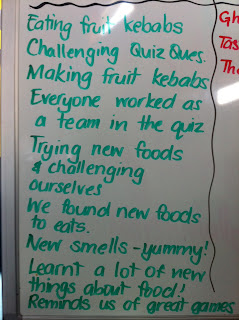 Eating fruit kebabs
Challenging Quiz Ques.
Making fruit kebabs
Everyone worked as
a team in the quiz
Trying new foods
& challenging
ourselves
We found new foods
to eats.
New smells - yummy!
Learnt a lot of new
things about food!
Reminds us of great games
Gh
Tas
The